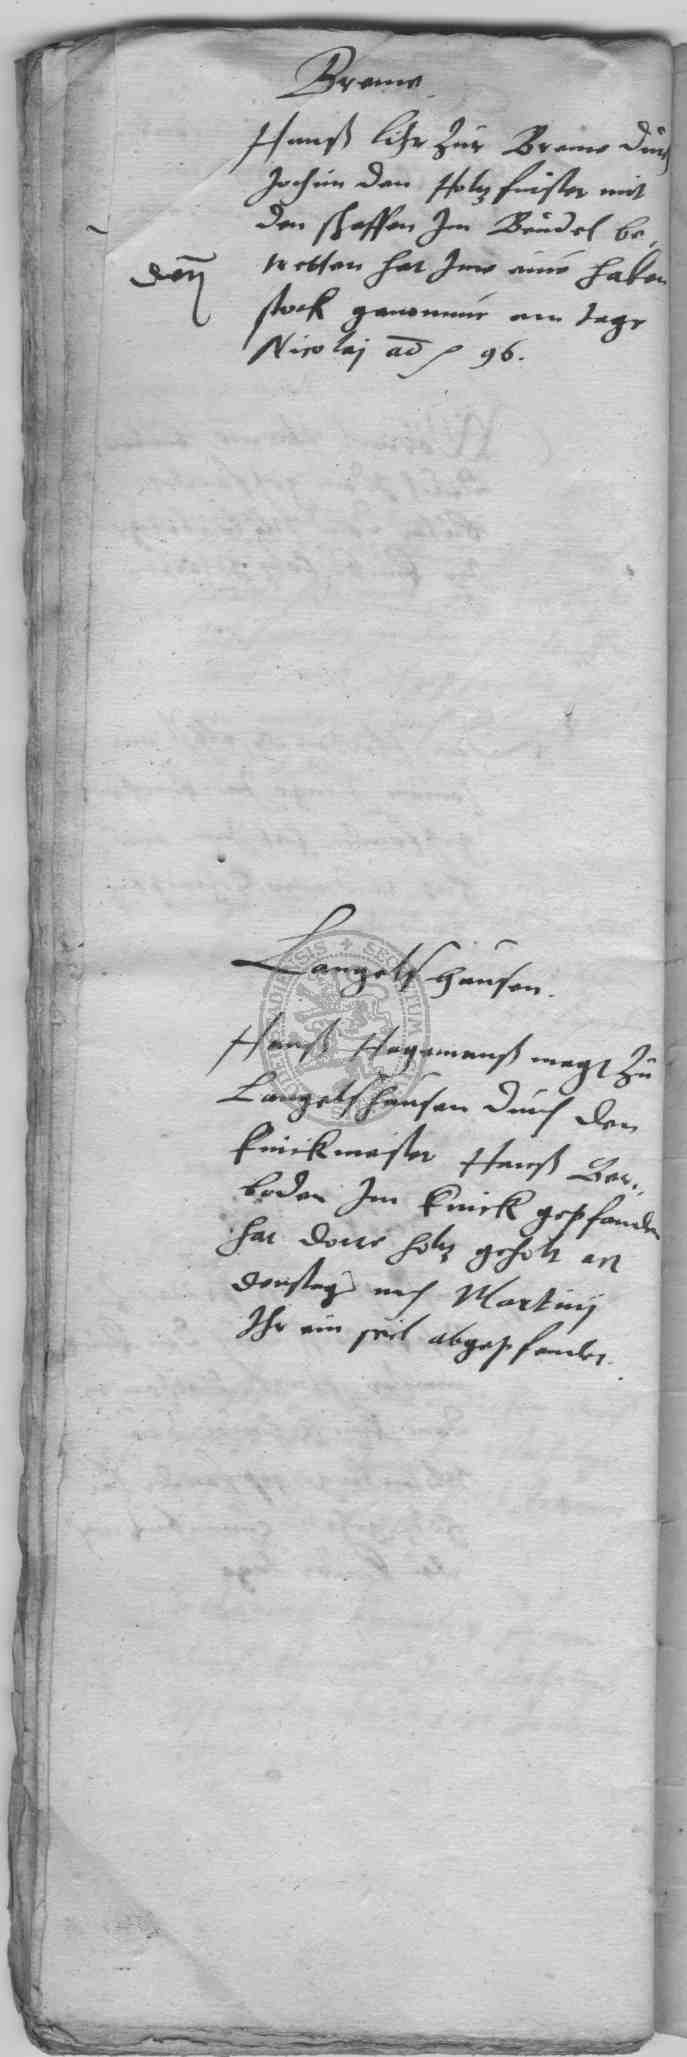 Breme
Hanß Lihr zur Breme durch
Jochim den Holtzfurster mit
den schaffen Im Bruch be,
dt
tretten hat Jme eine haken
stock genommen am tage
Nicolaj ad 96.
Langelshausen.
Hanß Hagemanß magt zu
Langelshausen durch den
Knickmeister Hanß Ber,,
boden Im Knick gepfandt
hat dorre holtz geholt am
denstag nach Martinj
Ihr ein seil abgepfandt.